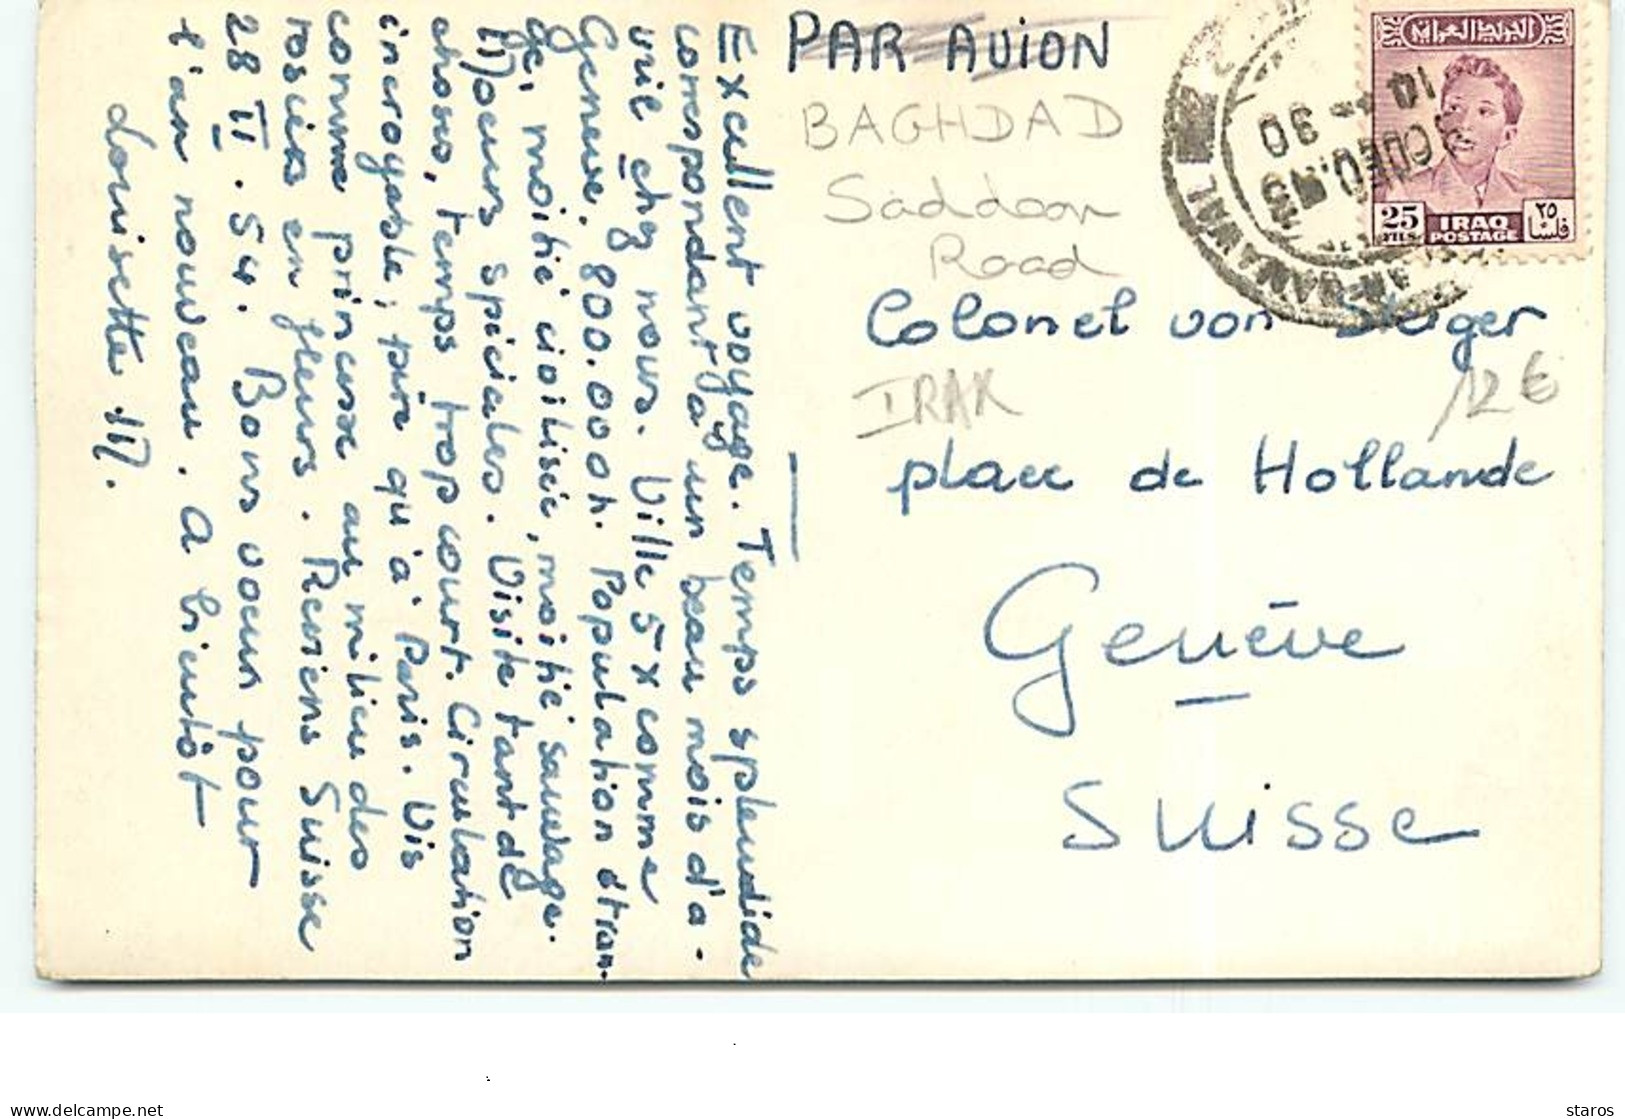 Excellent voyage. Temps splendide
correspondant à un beau mois d'a-
vril chez nous. Ville 5 x comme
Genève, 800.000 h. Population étran-
ge, moitié civilisée, moitié sauvage.
Moeurs spéciales. Visite tant de
choses, temps trop court. Circulation
incroyable, pire qu'à Paris. Vis
comme princesse au milieu des
rosiers en fleurs. Reviens Suisse
28 II. 54. Bons voeux pour
l'an nouveau. A bientôt
Louisette M.
PAR AVION
BAGHDAD
Saddoon
Road
Colonel von
IRAK
12€
place de Hollande
Genève
Suisse
25
FILS
IRAQ
POSTAGE
٢٥
فلسا
30
staros